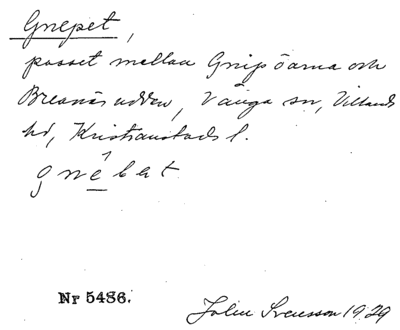 Gnepet,
passet mellan Gnipöarna och
Breanäsudden, Vånga sn, Villands
hd, Kristianstads l.
gnèbat
Nr 5486.
John Svensson 1929